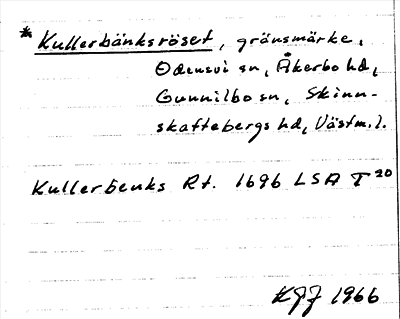 * Kullerbänksröset, gränsmärke,
Odensvi sn, Åkerbo hd,
Gunnilbo sn, Skinn-
skattebergs hd, Västm.l.
Kullerbenks Rt. 1696 LSA T 20
KGJ 1966